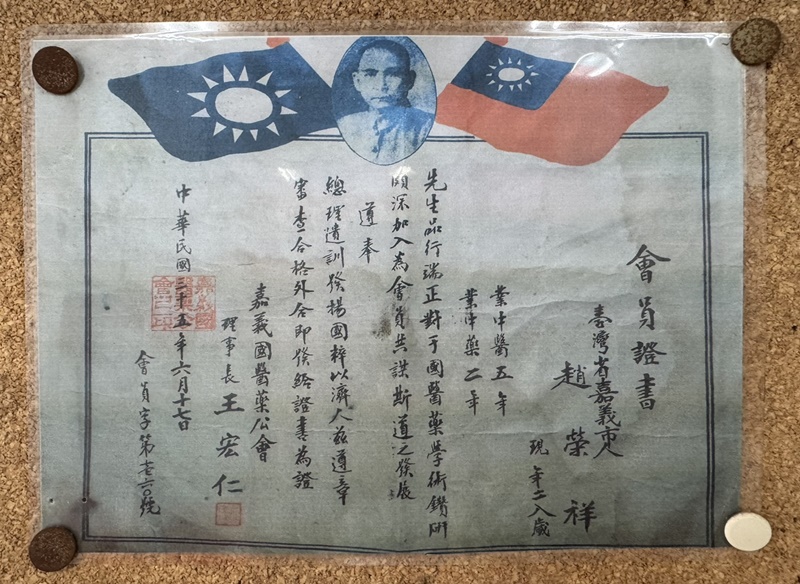 會員證書
臺灣省嘉義市人
趙榮祥
現年二八歲
業中醫五年
業中藥二年
先生品行端正對于國醫藥學術鑽研
頗深加入為會員共謀斯道之發展
遵奉
總理遺訓發揚國粹以濟人茲遵章
審查合格外合即發給證書為證
嘉義國醫藥公會
理事長王宏仁
中華民國三十五年六月十七日
會員字第號